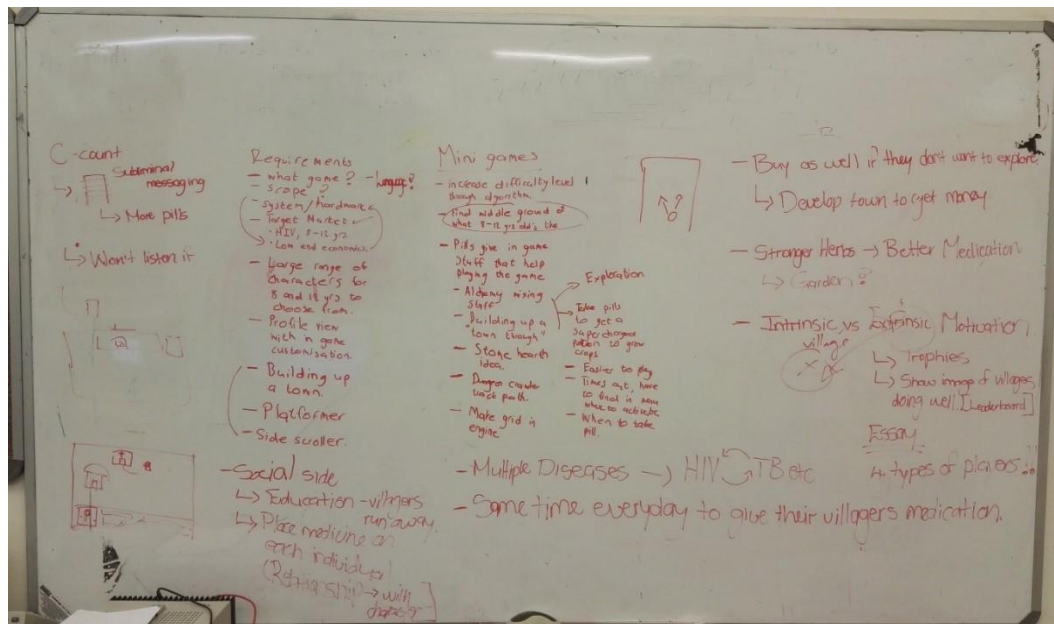 C-count
Subliminal
messaging
↳ More pills
↳ Won't listen it
Requirements
- what game? - language?
- scope?
- System/hardware
- Target Market
• HIV, 8-12 yrs
• Low end economics.
- Large range of
characters for
8 and 12 yrs to
choose from.
- Profile view
with in game
customisation.
- Building up
a town.
- Platformer
- Side scroller.
- Social side
↳ Education - villagers
run away.
↳ Place medicine on
each individual
→ with
Mini games
- increase difficulty level
through algorithm
- find middle ground of
what 8-12 yrs old's like
- Pills give in game
stuff that help
playing the game
- Alchemy mixing
stuff
- Building up a
"town through"
- Stone hearth
idea.
- Dungeon crawler
path.
- Make grid in
engine
Exploration
Take pills
to get a
supercharged
potion to grow
crops
- Easier to play
- Times out, have
to find in
when to activate
- When to take
pill.
- Multiple Diseases → HIV TB etc
- Same time everyday to give their villagers medication.
- Buy as well if they don't want to explore.
↳ Develop town to get money
- Stronger Herbs → Better Medication
↳ Garden?
- Intrinsic vs Extrinsic Motivation
village
↳ Trophies
↳ Show image of villagers
doing well. [Leaderboard]
Essay
4 types of players